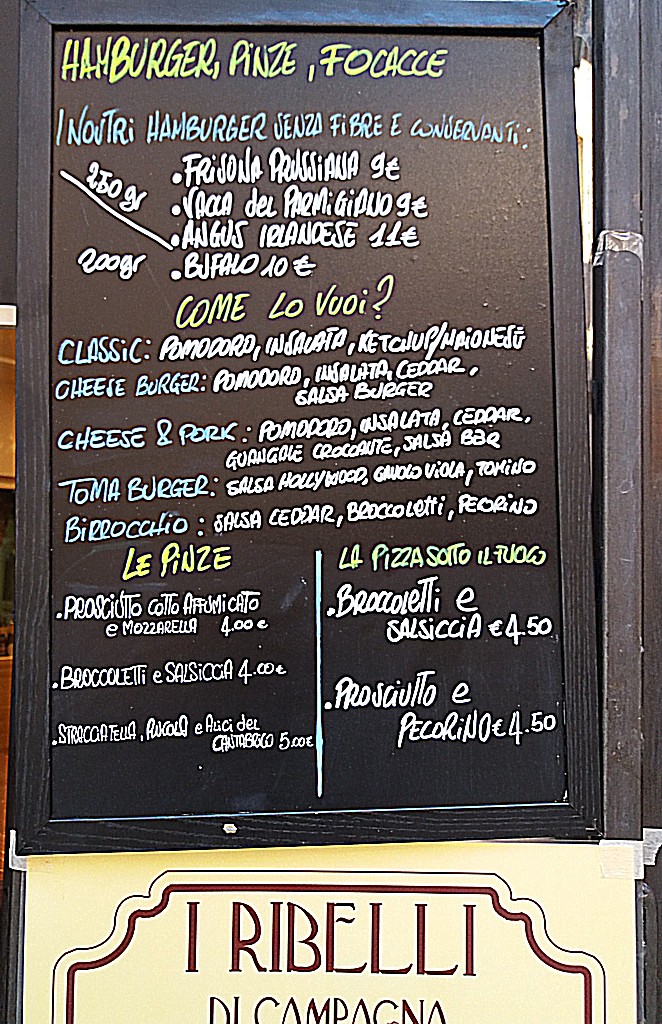 HAMBURGER, PINZE, FOCACCE
I NOSTRI HAMBURGER SENZA FIBRE E CONSERVANTI:
250 gr
• FRISONA PRUSSIANA 9€
• VACCA del PARMIGIANO 9€
• ANGUS IRLANDESE 11€
200gr • BUFALO 10€
COME LO VUOI?
CLASSIC: POMODORO, INSALATA, KETCHUP/MAIONESE
CHEESE BURGER: POMODORO, INSALATA, CEDDAR,
SALSA BURGER
CHEESE & PORK: POMODORO, INSALATA, CEDDAR,
GUANCIALE CROCCANTE, SALSA BBQ
TOMA BURGER: SALSA HOLLYWOOD, CAVOLO VIOLA, TOMINO
BIRROCCHIO: SALSA CEDDAR, BROCCOLETTI, PECORINO
LE PINZE
• PROSCIUTTO COTTO AFFUMICATO
e MOZZARELLA 4.00€
• BROCCOLETTI e SALSICCIA 4.00€
• STRACCIATELLA, RUCOLA e ALICI del
CANTABRICO 5.00€
LA PIZZA SOTTO IL FUOCO
• BROCCOLETTI e
SALSICCIA €4.50
• PROSCIUTTO e
PECORINO €4.50
I RIBELLI
DI CAMPAGNA